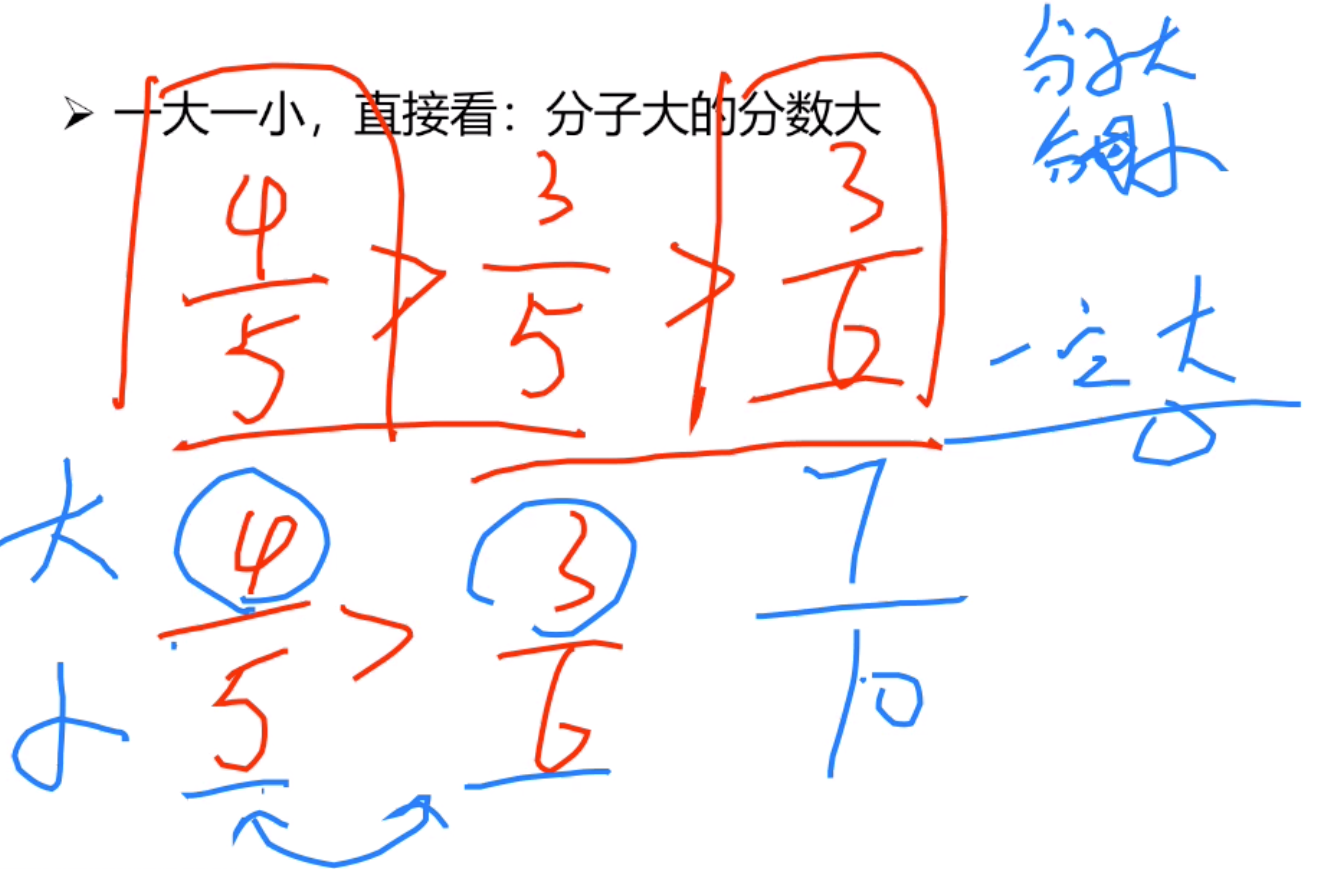 ➢ 一大一小，直接看：分子大的分数大
分子大
分母小
4/5 > 3/5 > 3/6
一定大
大 4/5 > 3/6 7/10
小